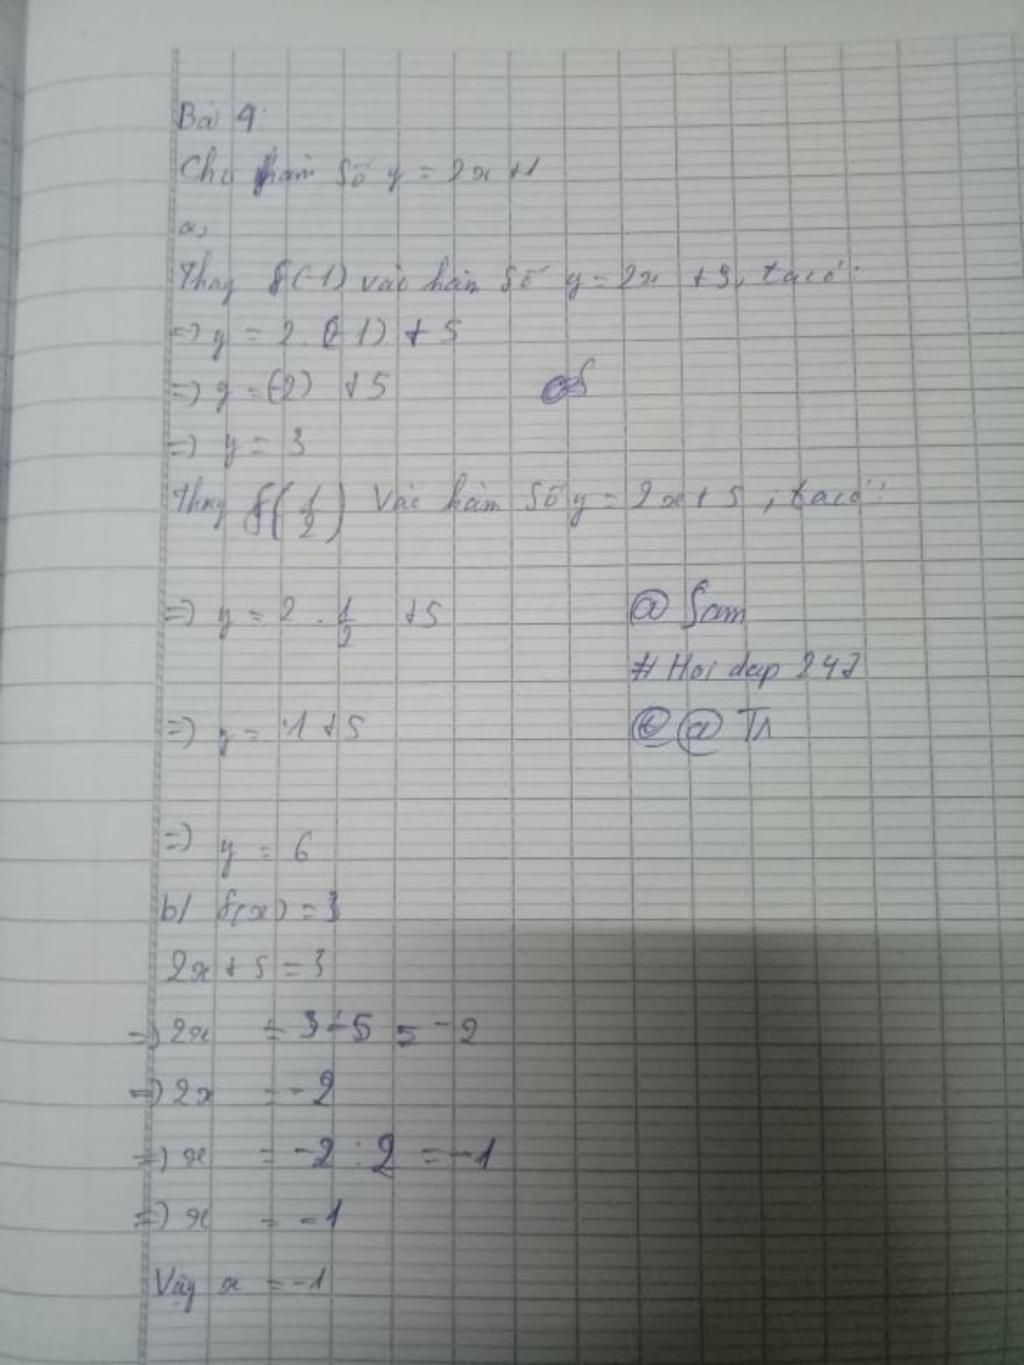 Bài 4
Cho hàm số y = 2x + 1
a,
Thay f(-1) vào hàm số y = 2x + 5, ta có:
=> y = 2.(-1) + 5
=> y = (-2) + 5
=> y = 3
Thay f(1/2) vào hàm số y = 2x + 5, ta có:
=> y = 2 . 1/2 + 5
@ Sam
# Hoi dap 247
=> y = 1 + 5
@ Tn
=> y = 6
b/ f(x) = 3
2x + 5 = 3
=> 2x = 3 - 5 = -2
=> 2x = -2
=> x = -2 : 2 = -1
=> x = -1
Vậy x = -1